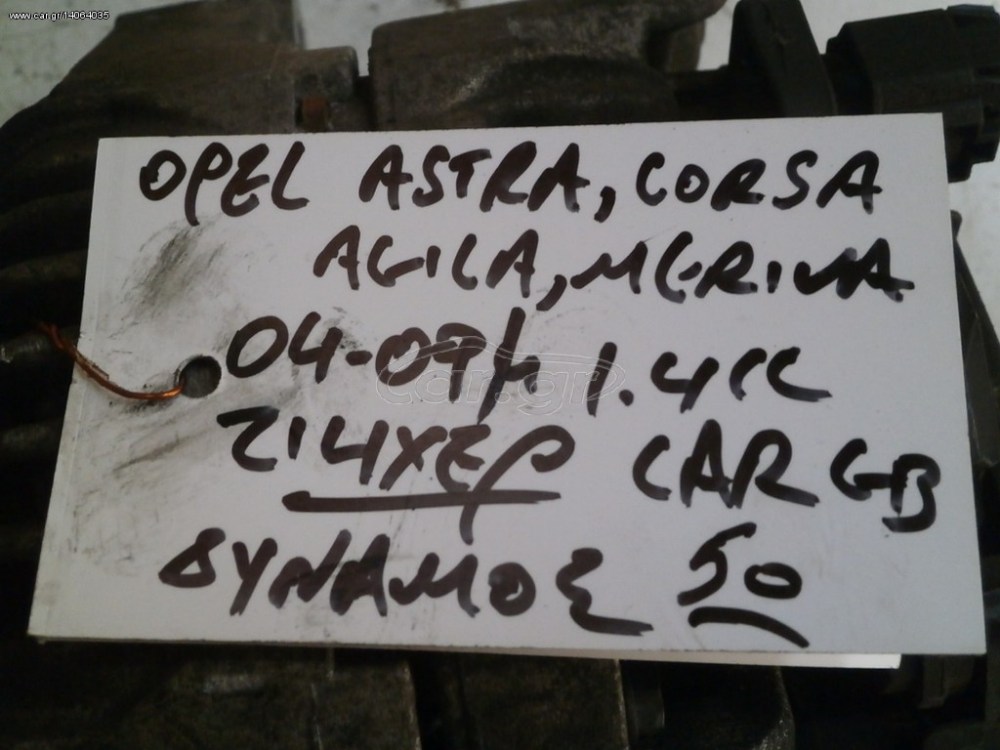 www.car.gr/14064035
OPEL ASTRA, CORSA
AGILA, MERIVA
04-09/ 1.4cc
Z14XEP CAR GB
ΔΥΝΑΜΟΣ 50
car.gr